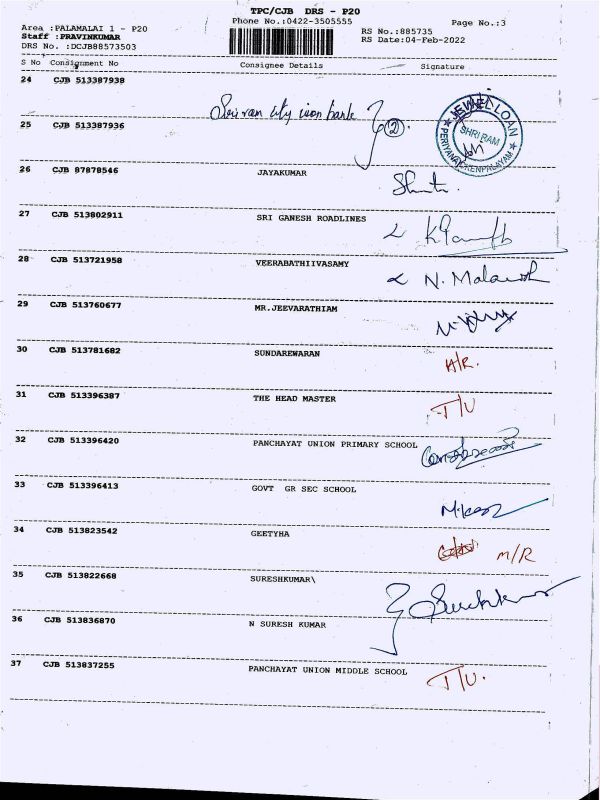 TPC/CJB DRS - P20
Phone No.:0422-3505555
Page No.:3
Area :PALAMALAI 1 - P20
Staff :PRAVINKUMAR
DRS No. :DCJB88573503
RS No.:885735
RS Date:04-Feb-2022
S No Consignment No Consignee Details Signature
24 CJB 513387938
Sri ram city uion bank } 2.
JEWEL LOAN
SHRI RAM
PERIYANAICKENPALAYAM
25 CJB 513387936
26 CJB 87878546 JAYAKUMAR
27 CJB 513802911 SRI GANESH ROADLINES
28 CJB 513721958 VEERABATHIIVASAMY
29 CJB 513760677 MR.JEEVARATHIAM
30 CJB 513781682 SUNDAREWARAN
31 CJB 513396387 THE HEAD MASTER T/U
32 CJB 513396420 PANCHAYAT UNION PRIMARY SCHOOL
33 CJB 513396413 GOVT GR SEC SCHOOL
34 CJB 513823542 GEETYHA M/R
35 CJB 513822668 SURESHKUMAR\
36 CJB 513836870 N SURESH KUMAR
37 CJB 513837255 PANCHAYAT UNION MIDDLE SCHOOL T/U.